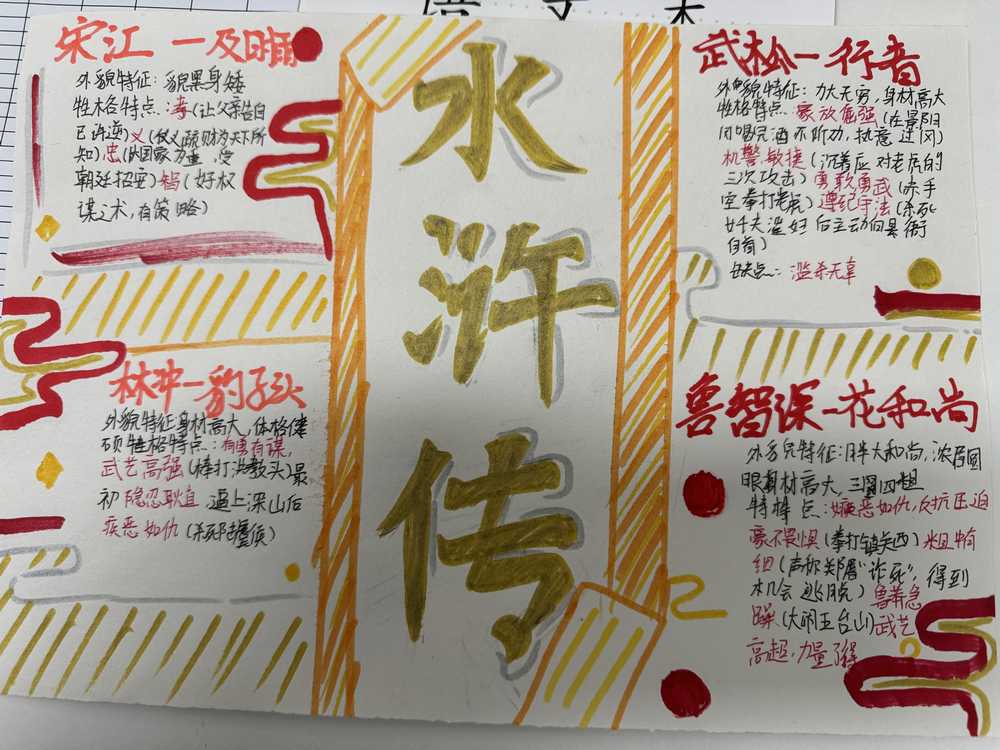 宋江一及时雨
外貌特征：貌黑身矮
性格特点：孝(让父亲告自
己许逆)义(仗义疏财为天下所
知)忠(为国家力量，受
朝廷招安)智(好权
谋之术，有策略)
林冲一豹子头
外貌特征身材高大，体格健
硕性格特点：有勇有谋，
武艺高强(棒打洪教头)最
初隐忍耿直，逼上深山后
疾恶如仇(杀死陆虞侯)
水
浒
传
武松一行者
外貌特征：力大无穷，身材高大
性格特点：豪放倔强(在景阳
冈喝完酒不听劝，执意过冈)
机警敏捷(沉着应对老虎的
三次攻击)勇敢勇武(赤手
空拳打老虎)遵纪守法(杀死
奸夫淫妇后主动向县衙
自首)
缺点：滥杀无辜
鲁智深一花和尚
外貌特征：胖大和尚，浓眉圆
眼身材高大，三 四粗
特择点：嫉恶如仇，反抗压迫
豪不畏惧(拳打镇关西)粗中有
细(声称郑屠“诈死”，得到
机会逃脱)鲁莽急
躁(大闹五台山)武艺
高超，力量了得